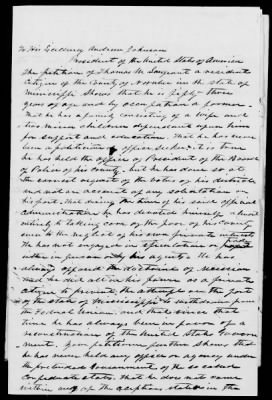 To His Excellency Andrew Johnson
President of the United States of America
The petition of Thomas W. a resident
Citizen of the County of in the State of
Mississippi Shows that he is fifty-three
years of age and by occupation a farmer.
That he has a family consisting of a wife and
two minor children dependant upon him
for support and education. That he has never
been a politician or office seeker. it is true
he has held the office of President of the Board
of Police of his County, but he has done so at
the earnest request of the voters of his district
and not on account of any solicitation on
his part. that during the time of his said official
administration he has devoted himself almost
entirely to taking care of the poor of his County
even to the neglect of his own private interests
He has not engaged in speculation of
either in person or by his agents. He has
always opposed the doctrine of secession
and he did all in his power as a private
citizen to prevent the attempt on the part
of the State of Mississippi to withdraw from
the Federal Union. and that since that
time he has always been in favor of a
reconstruction of the United States Govern
ment. Your petitioner further shows that
he has never held any office or agency under
the pretended Government of the so called
Confederate States. That he does not come
within any of the exceptions stated in the